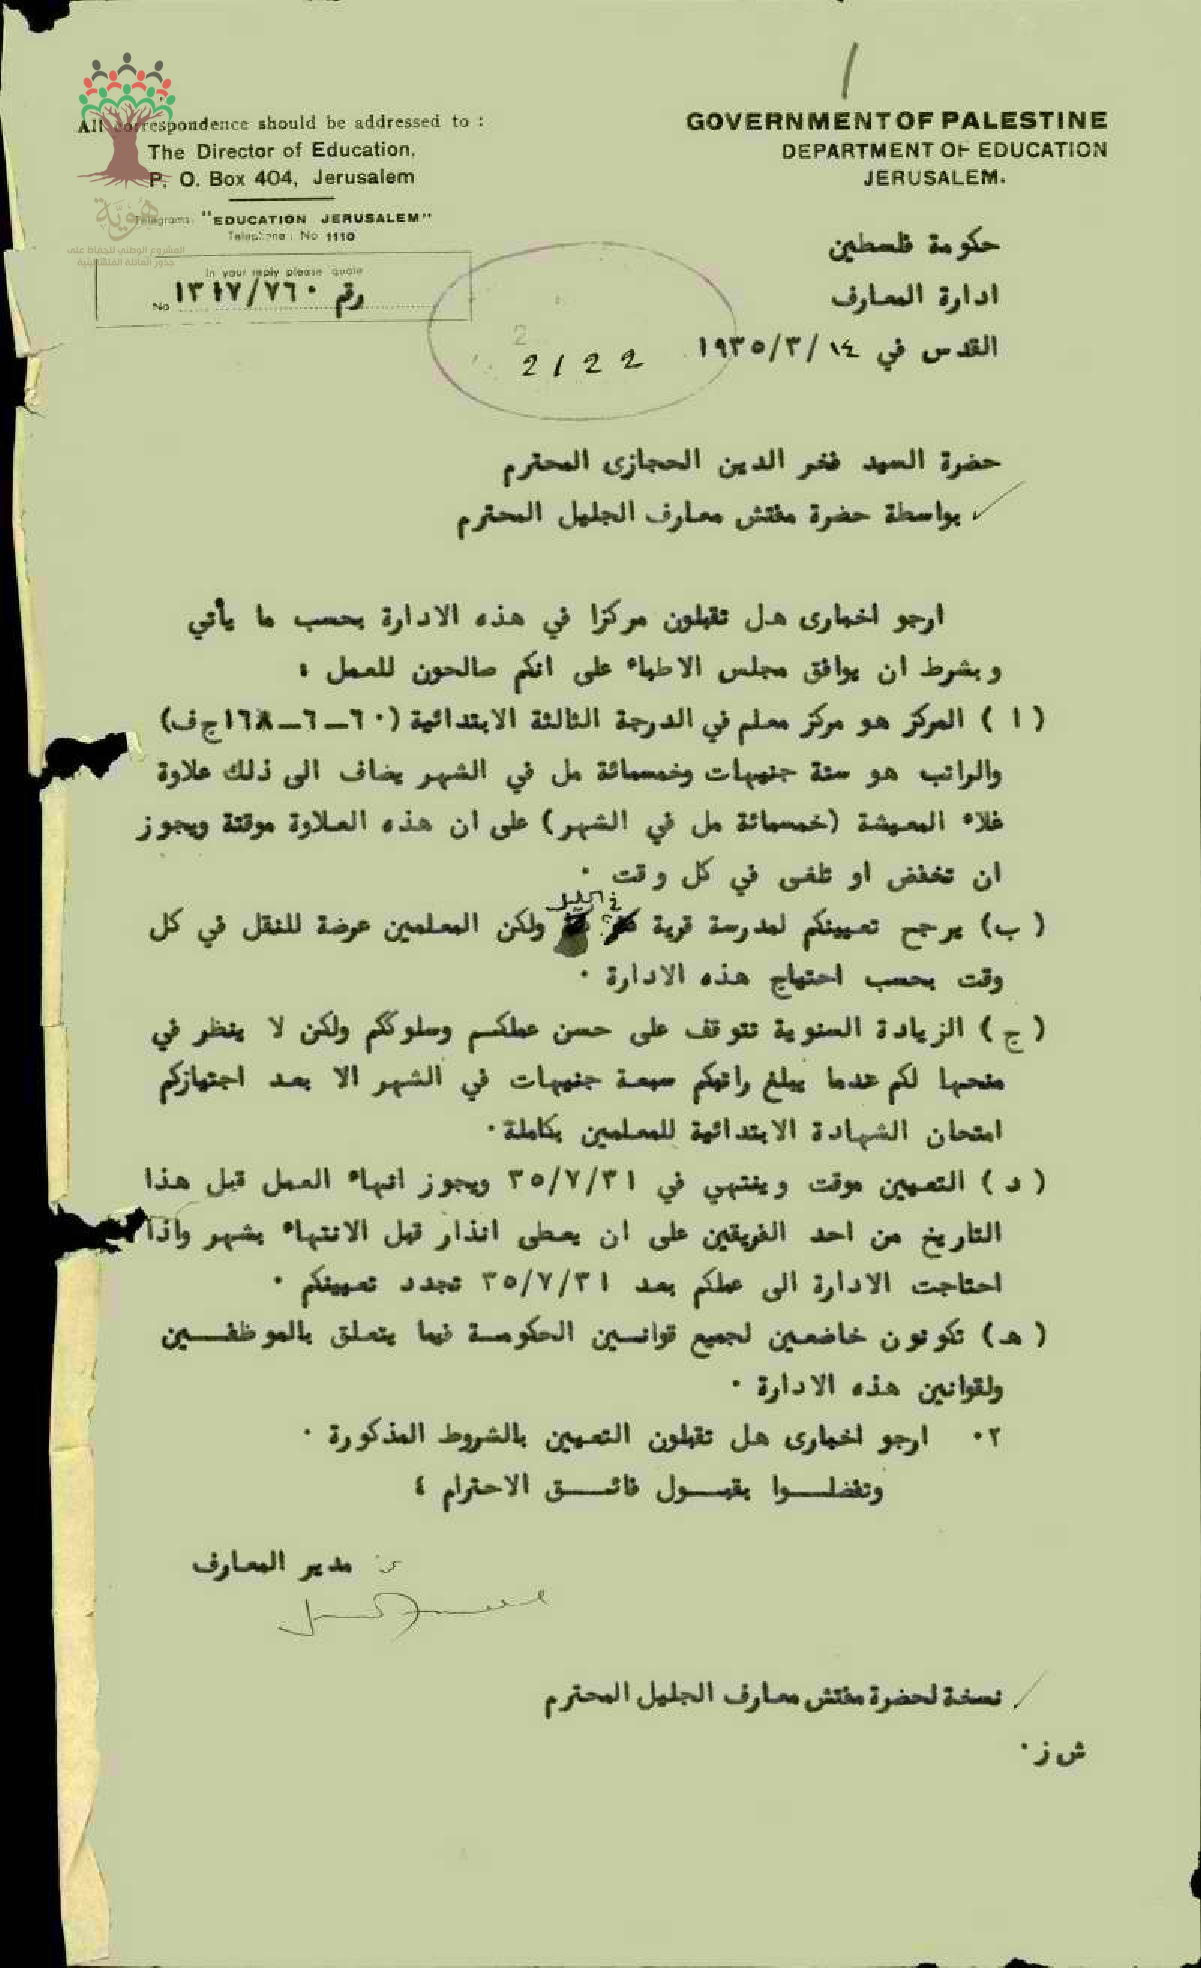 All correspondence should be addressed to :
The Director of Education,
P. O. Box 404, Jerusalem
Telegrams: "EDUCATION JERUSALEM"
Telephone: No 1110
In your reply please quote
No رقم ١٣١٧/٧٦٠
هُويَّة
المشروع الوطني للحفاظ على
جذور العائلة الفلسطينية
GOVERNMENT OF PALESTINE
DEPARTMENT OF EDUCATION
JERUSALEM.
حكومة فلسطين
ادارة المعارف
القدس في ١٤/٣/١٩٣٥
2122
حضرة السيد فخر الدين الحجازى المحترم
بواسطة حضرة مفتش معارف الجليل المحترم
ارجو اخبارى هل تقبلون مركزا في هذه الادارة بحسب ما يأتي
وبشرط ان يوافق مجلس الاطباء على انكم صالحون للعمل :
( ا ) المركز هو مركز معلم في الدرجة الثالثة الابتدائية (٦٠-٦-١٦٨ج٠ف)
والراتب هو ستة جنيهات وخمسمائة مل في الشهر يضاف الى ذلك علاوة
غلاء المعيشة (خمسمائة مل في الشهر) على ان هذه العلاوة موقتة ويجوز
ان تخفض او تلغى في كل وقت ٠
( ب) يرجح تعيينكم لمدرسة قرية ولكن المعلمين عرضة للنقل في كل
وقت بحسب احتياج هذه الادارة ٠
( ج ) الزيادة السنوية تتوقف على حسن عملكم وسلوككم ولكن لا ينظر في
منحها لكم عندما يبلغ راتبكم سبعة جنيهات في الشهر الا بعد اجتيازكم
امتحان الشهادة الابتدائية للمعلمين بكاملة٠
( د ) التعيين موقت وينتهي في ٣٥/٧/٣١ ويجوز انهاء العمل قبل هذا
التاريخ من احد الفريقين على ان يعطى انذار قبل الانتهاء بشهر واذا
احتاجت الادارة الى عملكم بعد ٣٥/٧/٣١ تجدد تعيينكم ٠
( هـ) تكونون خاضعين لجميع قوانين الحكومة فيما يتعلق بالموظفين
ولقوانين هذه الادارة ٠
٠٢ ارجو اخبارى هل تقبلون التعيين بالشروط المذكورة ٠
وتفضلوا بقبول فائق الاحترام ؛
عن مدير المعارف
نسخة لحضرة مفتش معارف الجليل المحترم
ش ز ٠